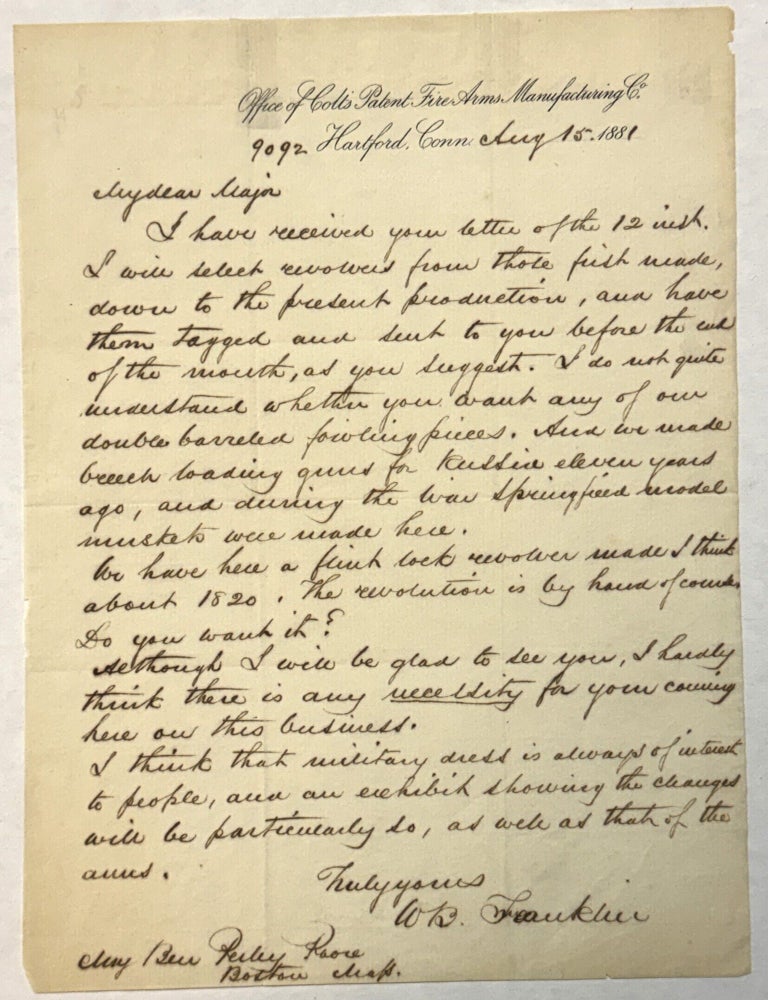 Office of Colt's Patent Fire Arms Manufacturing Co.
9092 Hartford, Conn. Aug 15. 1881
My dear Major
I have received your letter of the 12 inst.
I will select revolvers from those first made,
down to the present production, and have
them tagged and sent to you before the end
of the month, as you suggest. I do not quite
understand whether you want any of our
double barreled fowling pieces. And we made
breech loading guns for Russia eleven years
ago, and during the War Springfield model
muskets were made here.
We have here a flint lock revolver made I think
about 1820. The revolution is by hand of course.
Do you want it?
Although I will be glad to see you, I hardly
think there is any necessity for your coming
here on this business.
I think that military dress is always of interest
to people, and an exhibit showing the changes
will be particularly so, as well as that of the
arms.
Truly yours
W B. Franklin
Maj Ben Perley Poore
Boston Mass.